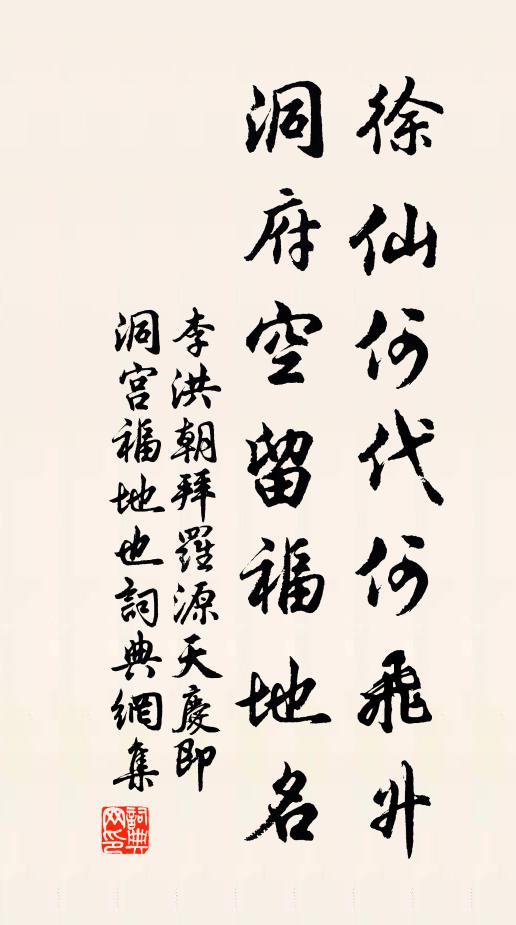 徐仙何代何飛升
洞府空留福地名
李洪朝拜羅源天慶即
洞宮福地也詞典網集
詞典網印